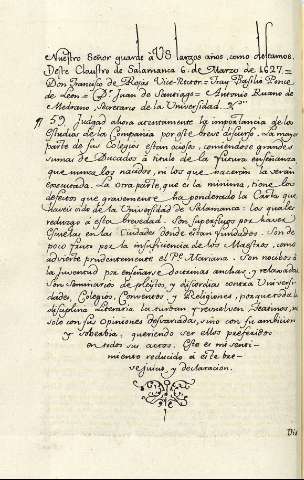 Nuestro Señor guarde à VS largos años, como deseamos.
Deste Claustro de Salamanca 6. de Marzo de 1627. =
Don Francisco de Rojas Vice-Retor = Fray Basilio Ponce
de Leon = El Dr. Juan de Santiago = Antonio Ruano de
Medrano, Secretario de la Universidad.
¶ 59. Juzgad ahora atentamente la importancia de los
Estudios de la Compañia por este breve discurso. La mayor
parte de sus Colegios estan ociosos, comiendose grandes
sumas de Ducados à titulo de la futura enseñanza
que nunca los nacidos, ni los que naceran la veran
executada. La otra parte, que es la minima, tiene los
defectos que gravemente ha ponderado la Carta que
haveis oido de la Universidad de Salamanca: los quales
redurgo à esta brevedad. Son superfluos por haver
Escuelas en las Ciudades donde estan fundados. Son de
poco fruto por la insuficiencia de los Maestros, como
advierte prudentemente el Pe. Mariana. Son nocibos à
la Juventud por enseñarse doctrinas anchas, y relaxadas.
Son Seminarios de pleytos, y discordias contra Universi-
dades, Colegios, Conventos, y Religiones, porque toda la
disciplina literaria la turban y revuelven Teatinos, no
solo con sus Opiniones desvariadas, sino con su ambicion
y sobervia, queriendo ser ellos preferidos
en todos sus actos. Este es mi senti-
miento reducido à este bre-
ve juicio, y declaracion.